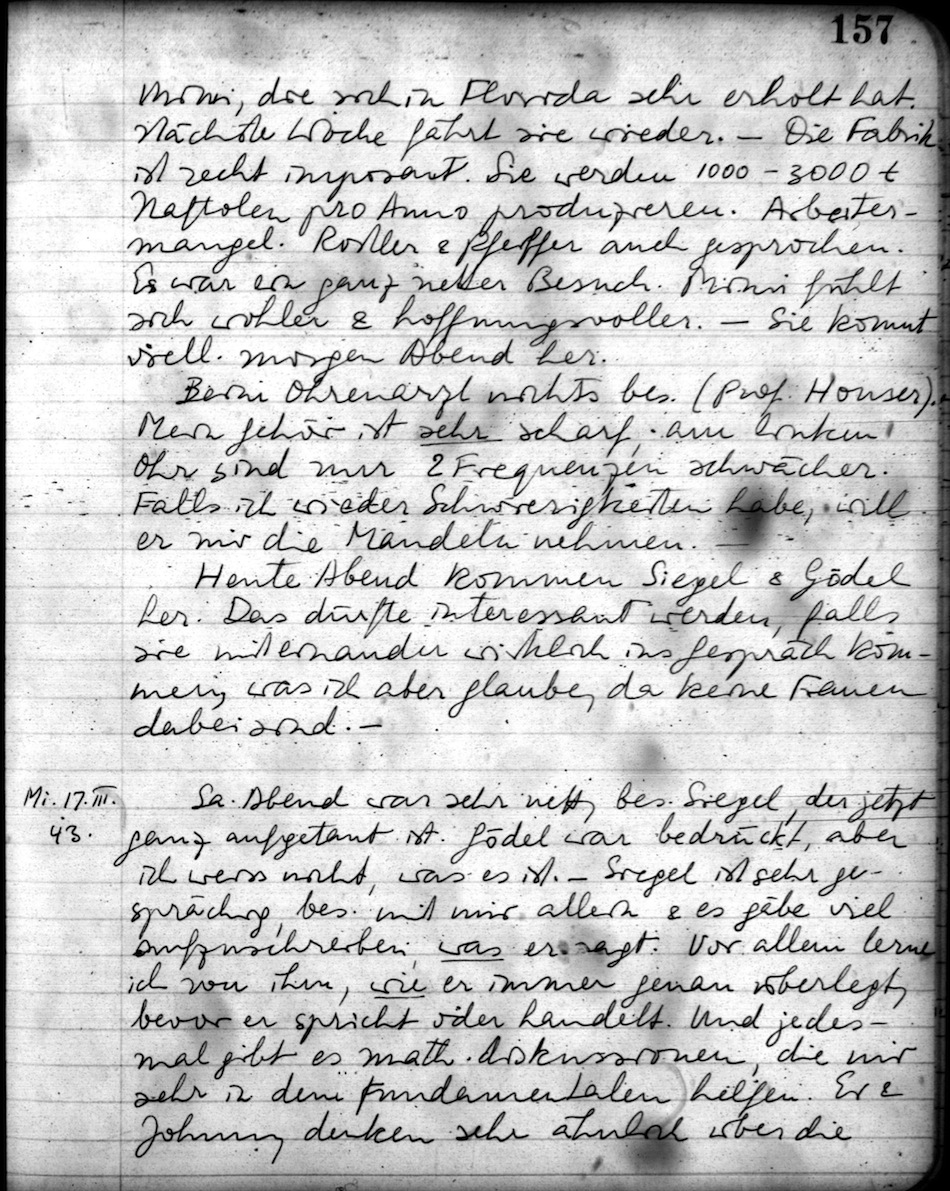 157
Mimi, die sich in Florida sehr erholt hat.
Nächste Woche fährt sie wieder. — Die Fabrik
ist recht imposant. Sie werden 1000 – 3000 t
pro Anno produzieren. Arbeiter-
mangel. & Pfeiffer auch gesprochen.
Es war ein ganz netter Besuch. Mimi fühlt
sich wohler & hoffnungsvoller. — Sie kommt
viell. morgen Abend her.
Beim Ohrenarzt nichts bes. (Prof. Houser).
Mein Gehör ist sehr scharf, am linken
Ohr sind nur 2 Frequenzen schwächer.
Falls ich wieder Schwierigkeiten habe, will
er mir die Mandeln nehmen. —
Heute Abend kommen Siegel & Gödel
her. Das dürfte interessant werden, falls
sie miteinander wirklich ins Gespräch kom-
men, was ich aber glaube, da keine Frauen
dabei sind. —
Mi. 17. III.
43.
Sa. Abend war sehr nett, bes. Siegel, der jetzt
ganz aufgetaut ist. Gödel war bedrückt, aber
ich weiss nicht, was es ist. — Siegel ist sehr ge-
sprächig, bes. mit mir allein & es gäbe viel
aufzuschreiben, was er sagt. Vor allem lerne
ich von ihm, wie er immer genau überlegt,
bevor er spricht oder handelt. Und jedes-
mal gibt es math. Diskussionen, die mir
sehr in dem Fundamentalen helfen. Er &
Johnny denken sehr ähnlich über die